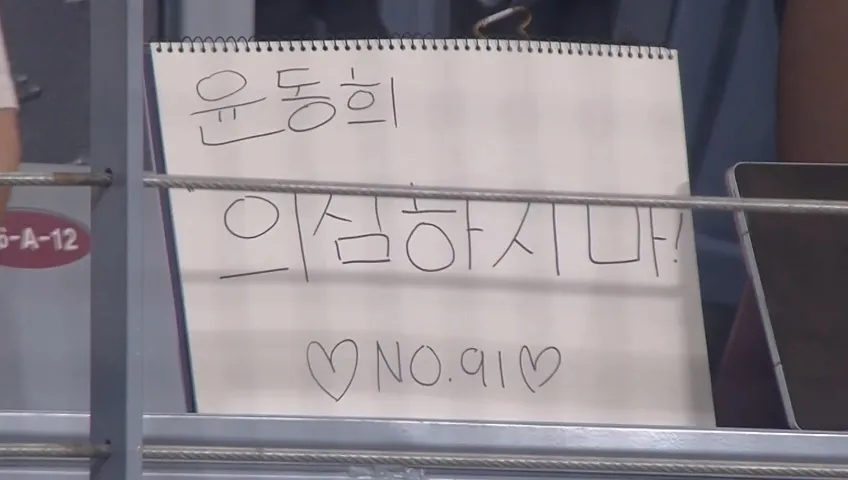 윤동희
의심하지마!
♡NO.91♡
6-A-12